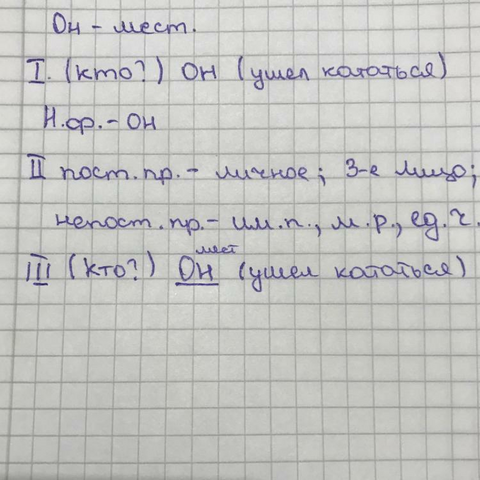 Он - мест.
I. (кто?) ОН (ушел кататься)
Н.ф. - ОН
II пост. пр. - личное; 3-е лицо;
непост. пр. - им.п., м.р., ед.ч.
мест
III (кто?) ОН (ушел кататься)